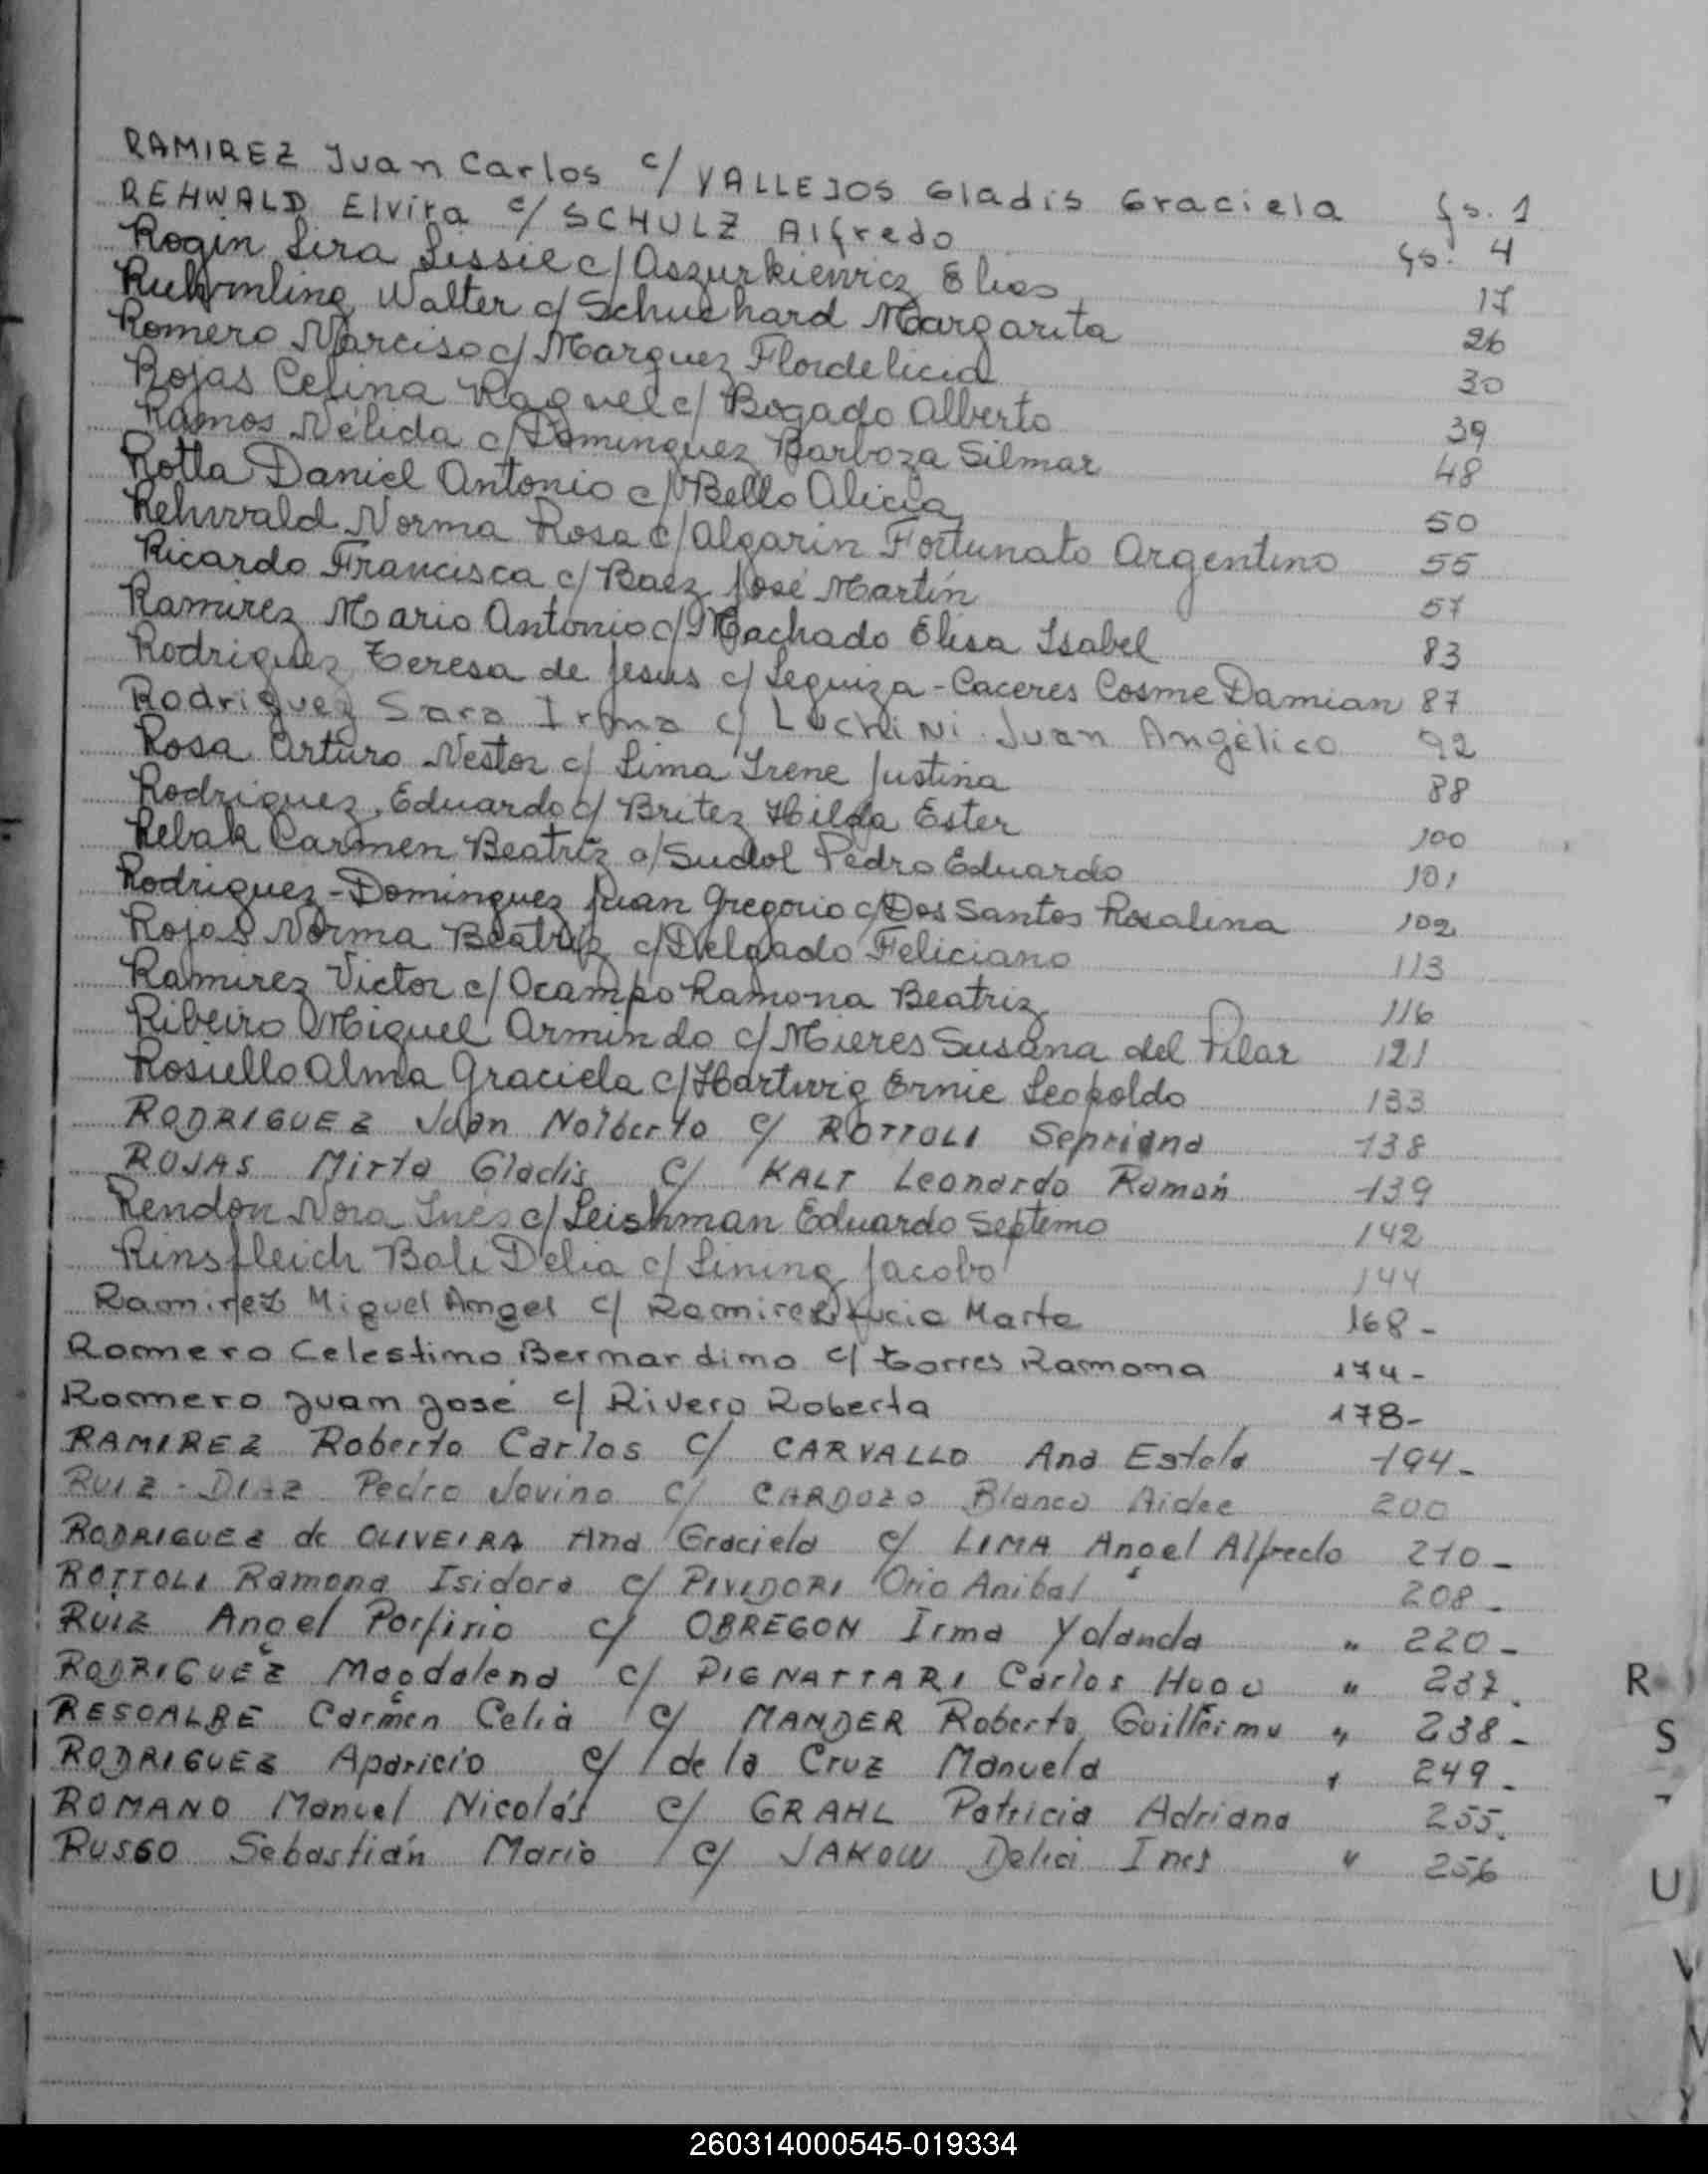 RAMIREZ Juan Carlos c/ VALLEJOS Gladis Graciela fs. 1
REHWALD Elvira c/ SCHULZ Alfredo fs. 4
Rogin Lira Lissie c/ Aszurkiewicz Elias 17
Walter c/ Schuchard Margarita 26
Romero Narciso c/ Marquez Flordelicia 30
Rojas Celina Raquel c/ Bogado Alberto 39
Ramos Nélida c/ Dominguez Barboza Silmar 48
Rotta Daniel Antonio c/ Bello Alicia 50
Rehwald Norma Rosa c/ Algarin Fortunato Argentino 55
Ricardo Francisca c/ Baez José Martín 57
Ramirez Mario Antonio c/ Machado Elisa Isabel 83
Rodriguez Teresa de Jesus c/ Leguiza-Caceres Cosme Damian 87
Rodriguez Sara Irma c/ Luchini Juan Angélico 92
Rosa Arturo Nestor c/ Lima Irene Justina 88
Rodriguez Eduardo c/ Britez Hilda Ester 100
Rebak Carmen Beatriz c/ Sudol Pedro Eduardo 101
Rodriguez-Dominguez Juan Gregorio c/ Dos Santos Rosalina 102
Rojas Norma Beatriz c/ Delgado Feliciano 113
Ramirez Victor c/ Ocampo Ramona Beatriz 116
Ribeiro Miguel Armindo c/ Mieres Susana del Pilar 121
Rosiello Alma Graciela c/ Hartwig Ernie Leopoldo 133
RODRIGUEZ Juan Nolberto c/ ROTTOLI Sepriana 138
ROJAS Mirta Gladis c/ KALT Leonardo Ramón 139
Rendon Nora Inés c/ Leishman Eduardo Septimo 142
Rinsfleich Bali Delia c/ Lining Jacobo 144
Ramirez Miguel Angel c/ Ramirez Lucia Marta 168-
Romero Celestino Bernardino c/ Torres Ramona 174-
Romero Juan José c/ Rivero Roberta 178-
RAMIREZ Roberto Carlos c/ CARVALLO Ana Estela 194-
RUIZ-DIAZ Pedro Jovino c/ CARDOZO Blanca Aidee 200
RODRIGUEZ de OLIVEIRA Ana Graciela c/ LIMA Angel Alfredo 210-
ROTTOLI Ramona Isidora c/ PIVIDORI Orio Anibal 208-
RUIZ Angel Porfirio c/ OBREGON Irma Yolanda " 220-
RODRIGUEZ Magdalena c/ PIGNATTARI Carlos Hugo " 237.
RESOALBE Carmen Celia c/ MANDER Roberto Guillermo " 238-
RODRIGUEZ Aparicio c/ de la Cruz Manuela " 249-
ROMANO Manuel Nicolás c/ GRAHL Patricia Adriana 255.
RUSSO Sebastián Mario c/ JAKOW Delia Ines " 256
R
S
U
V
260314000545-019334